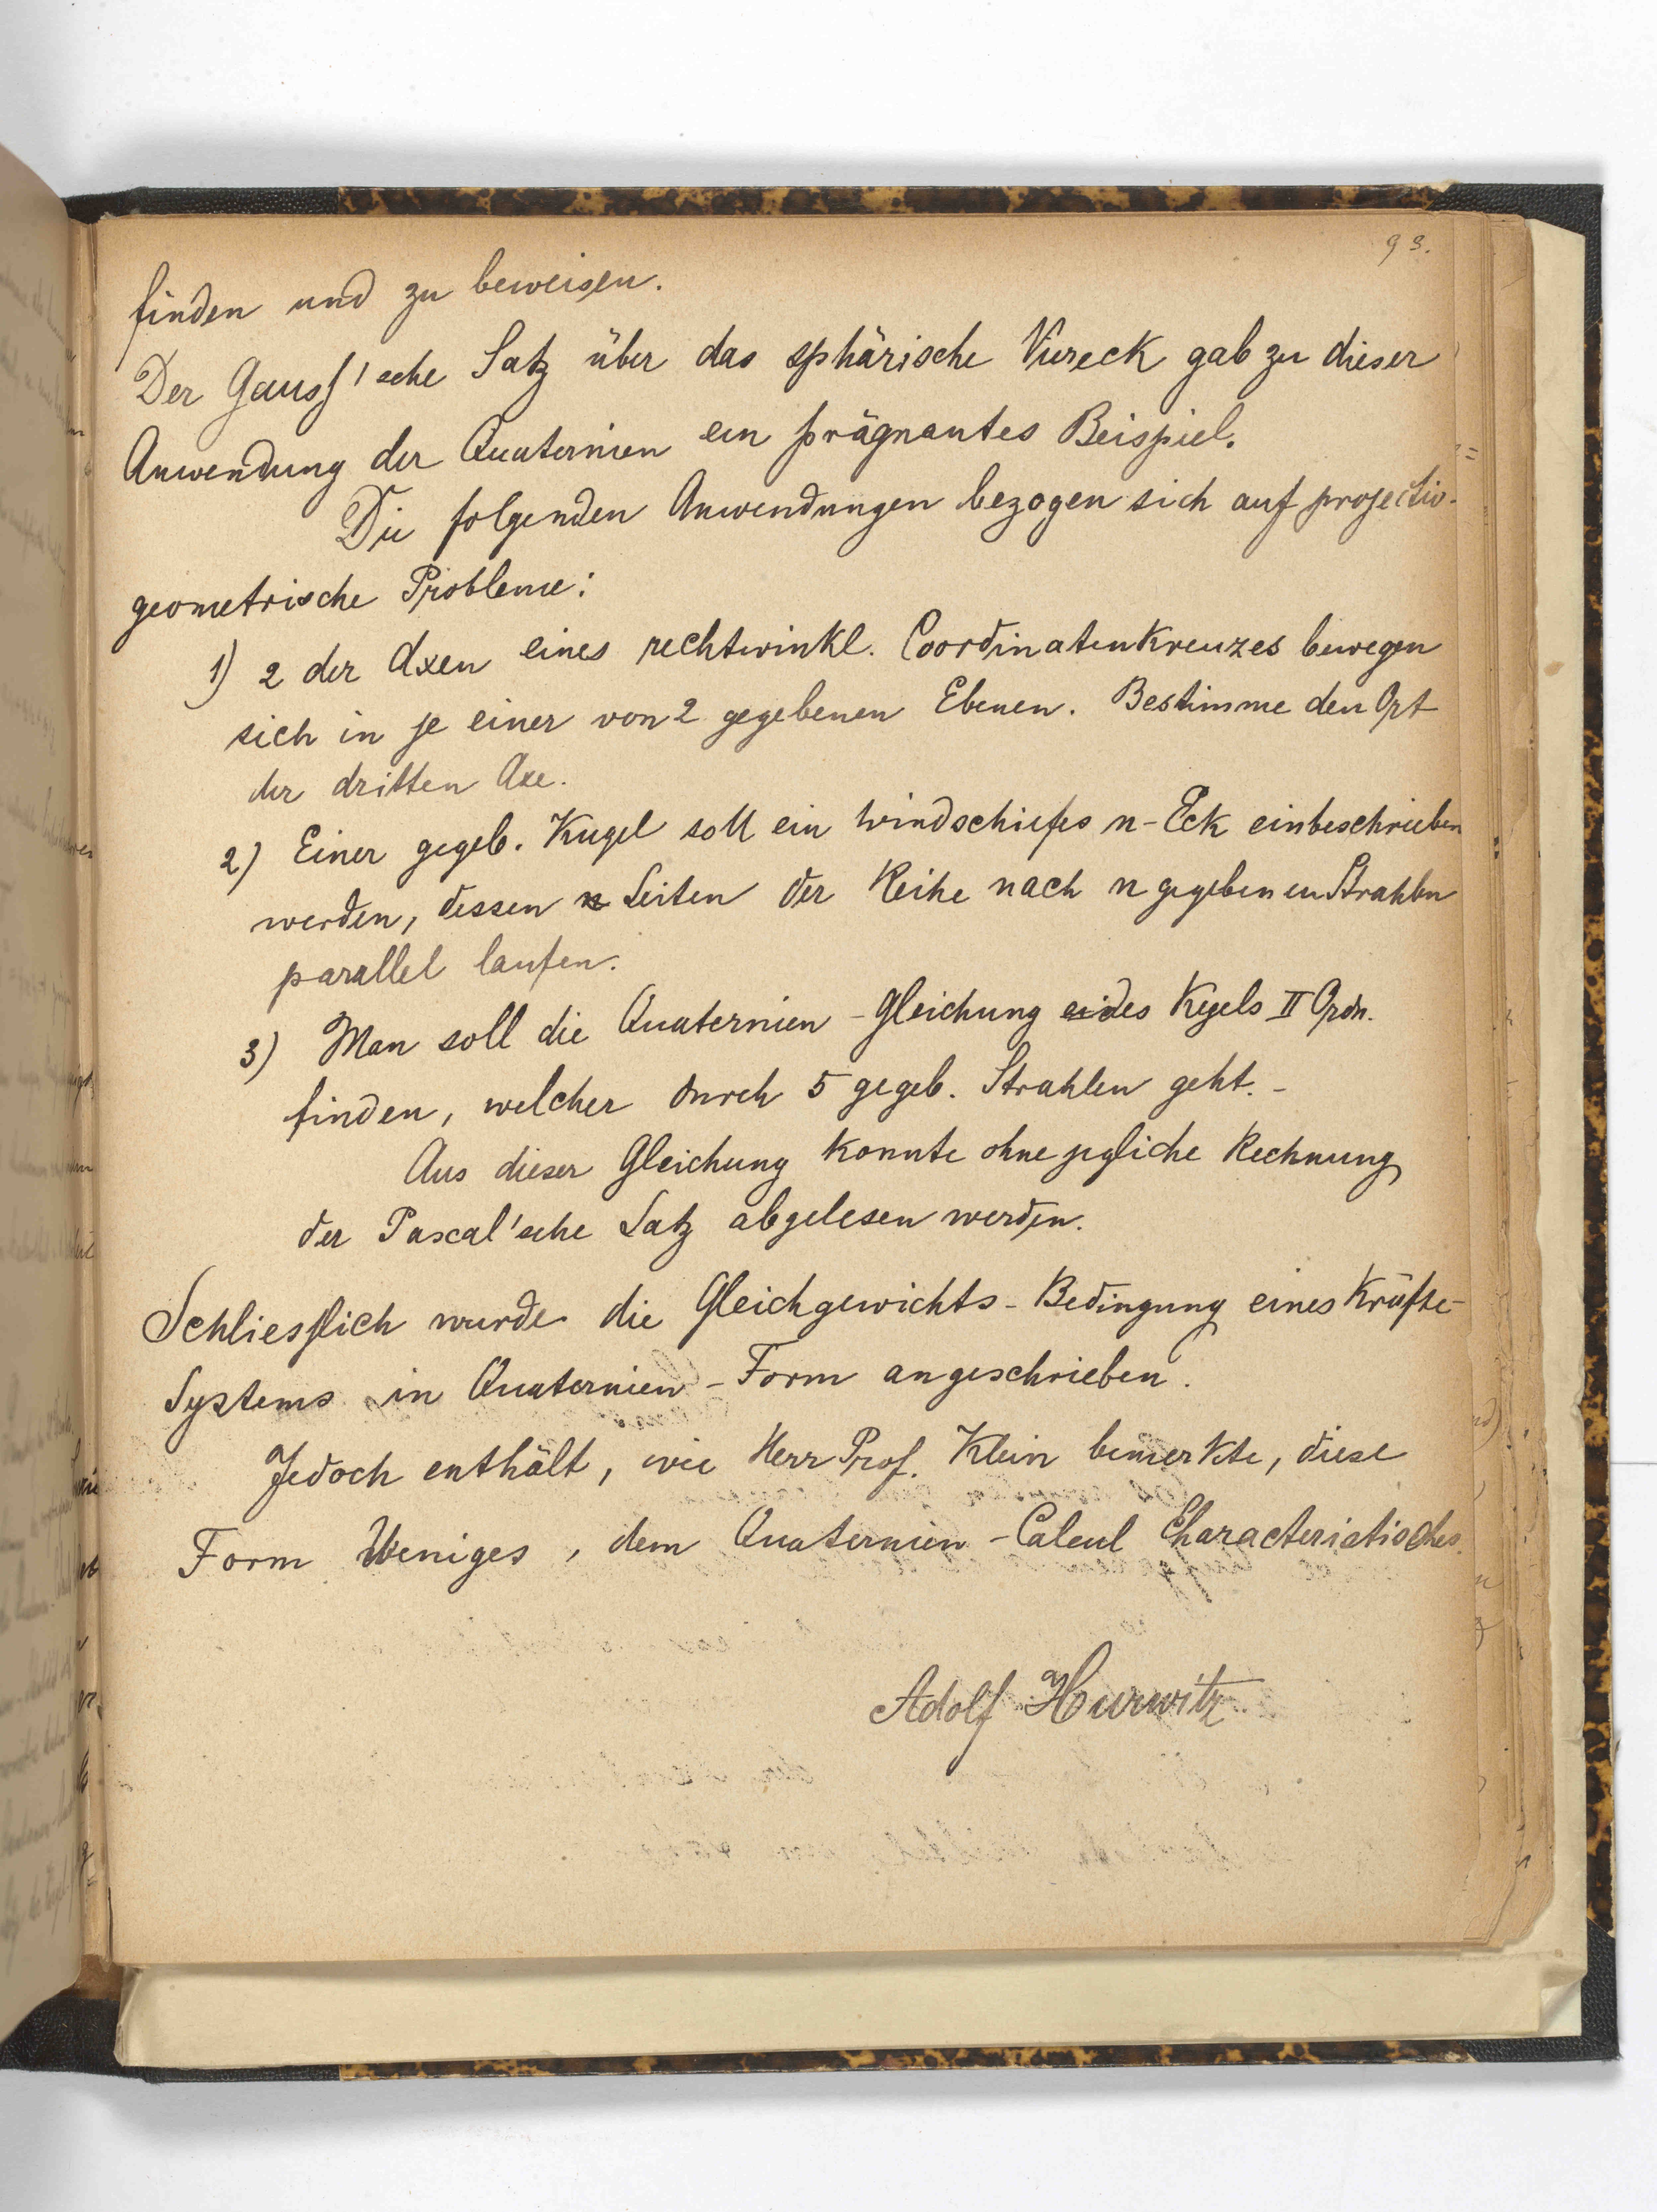 93.
finden und zu beweisen.
Der Gauss'sche Satz über das sphärische Viereck gab zu dieser
Anwendung der Quaternien ein prägnantes Beispiel.
Die folgenden Anwendungen bezogen sich auf projectiv-
geometrische Probleme:
1) 2 der Axen eines rechtwinkl. Coordinatenkreuzes bewegen
sich in je einer von 2 gegebenen Ebenen. Bestimme den Ort
der dritten Axe.
2) Einer gegeb. Kugel soll ein windschiefes n-Eck einbeschrieben
werden, dessen Seiten der Reihe nach n gegebenen Strahlen
parallel laufen.
3) Man soll die Quaternien-Gleichung des Kegels II Ordn.
finden, welcher durch 5 gegeb. Strahlen geht. -
Aus dieser Gleichung konnte ohne jegliche Rechnung
der Pascal'sche Satz abgelesen werden.
Schliesslich wurde die Gleichgewichts-Bedingung eines Kräfte-
Systems in Quaternien-Form angeschrieben.
Jedoch enthält, wie Herr Prof. Klein bemerkte, diese
Form Weniges, dem Quaternien-Calcul Characteristisches.
Adolf Hurwitz